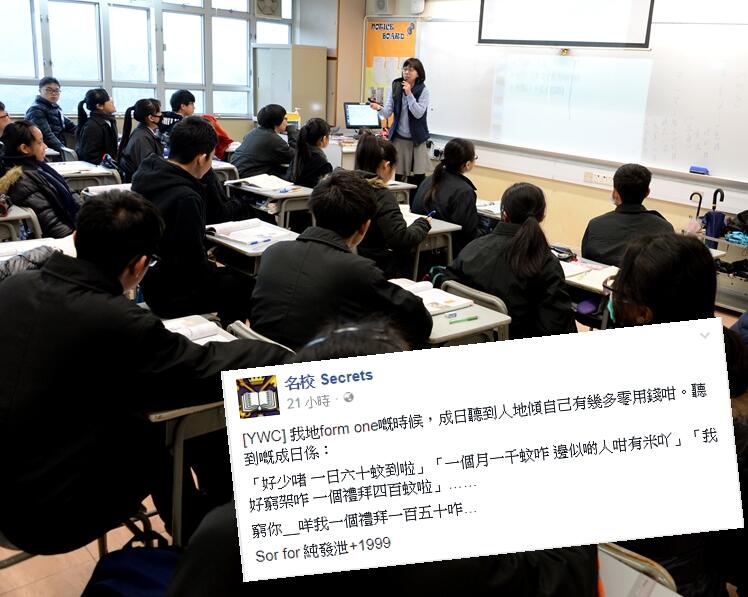 NOTICE
BOARD
名校 Secrets
21 小時
[YWC] 我地form one嘅時候，成日聽到人地傾自己有幾多零用錢咁。聽
到嘅成日係：
「好少啫 一日六十蚊到啦」「一個月一千蚊咋 邊似啲人咁有米吖」「我
好窮架咋 一個禮拜四百蚊啦」……
窮你__咩我一個禮拜一百五十咋...
Sor for 純發泄+1999